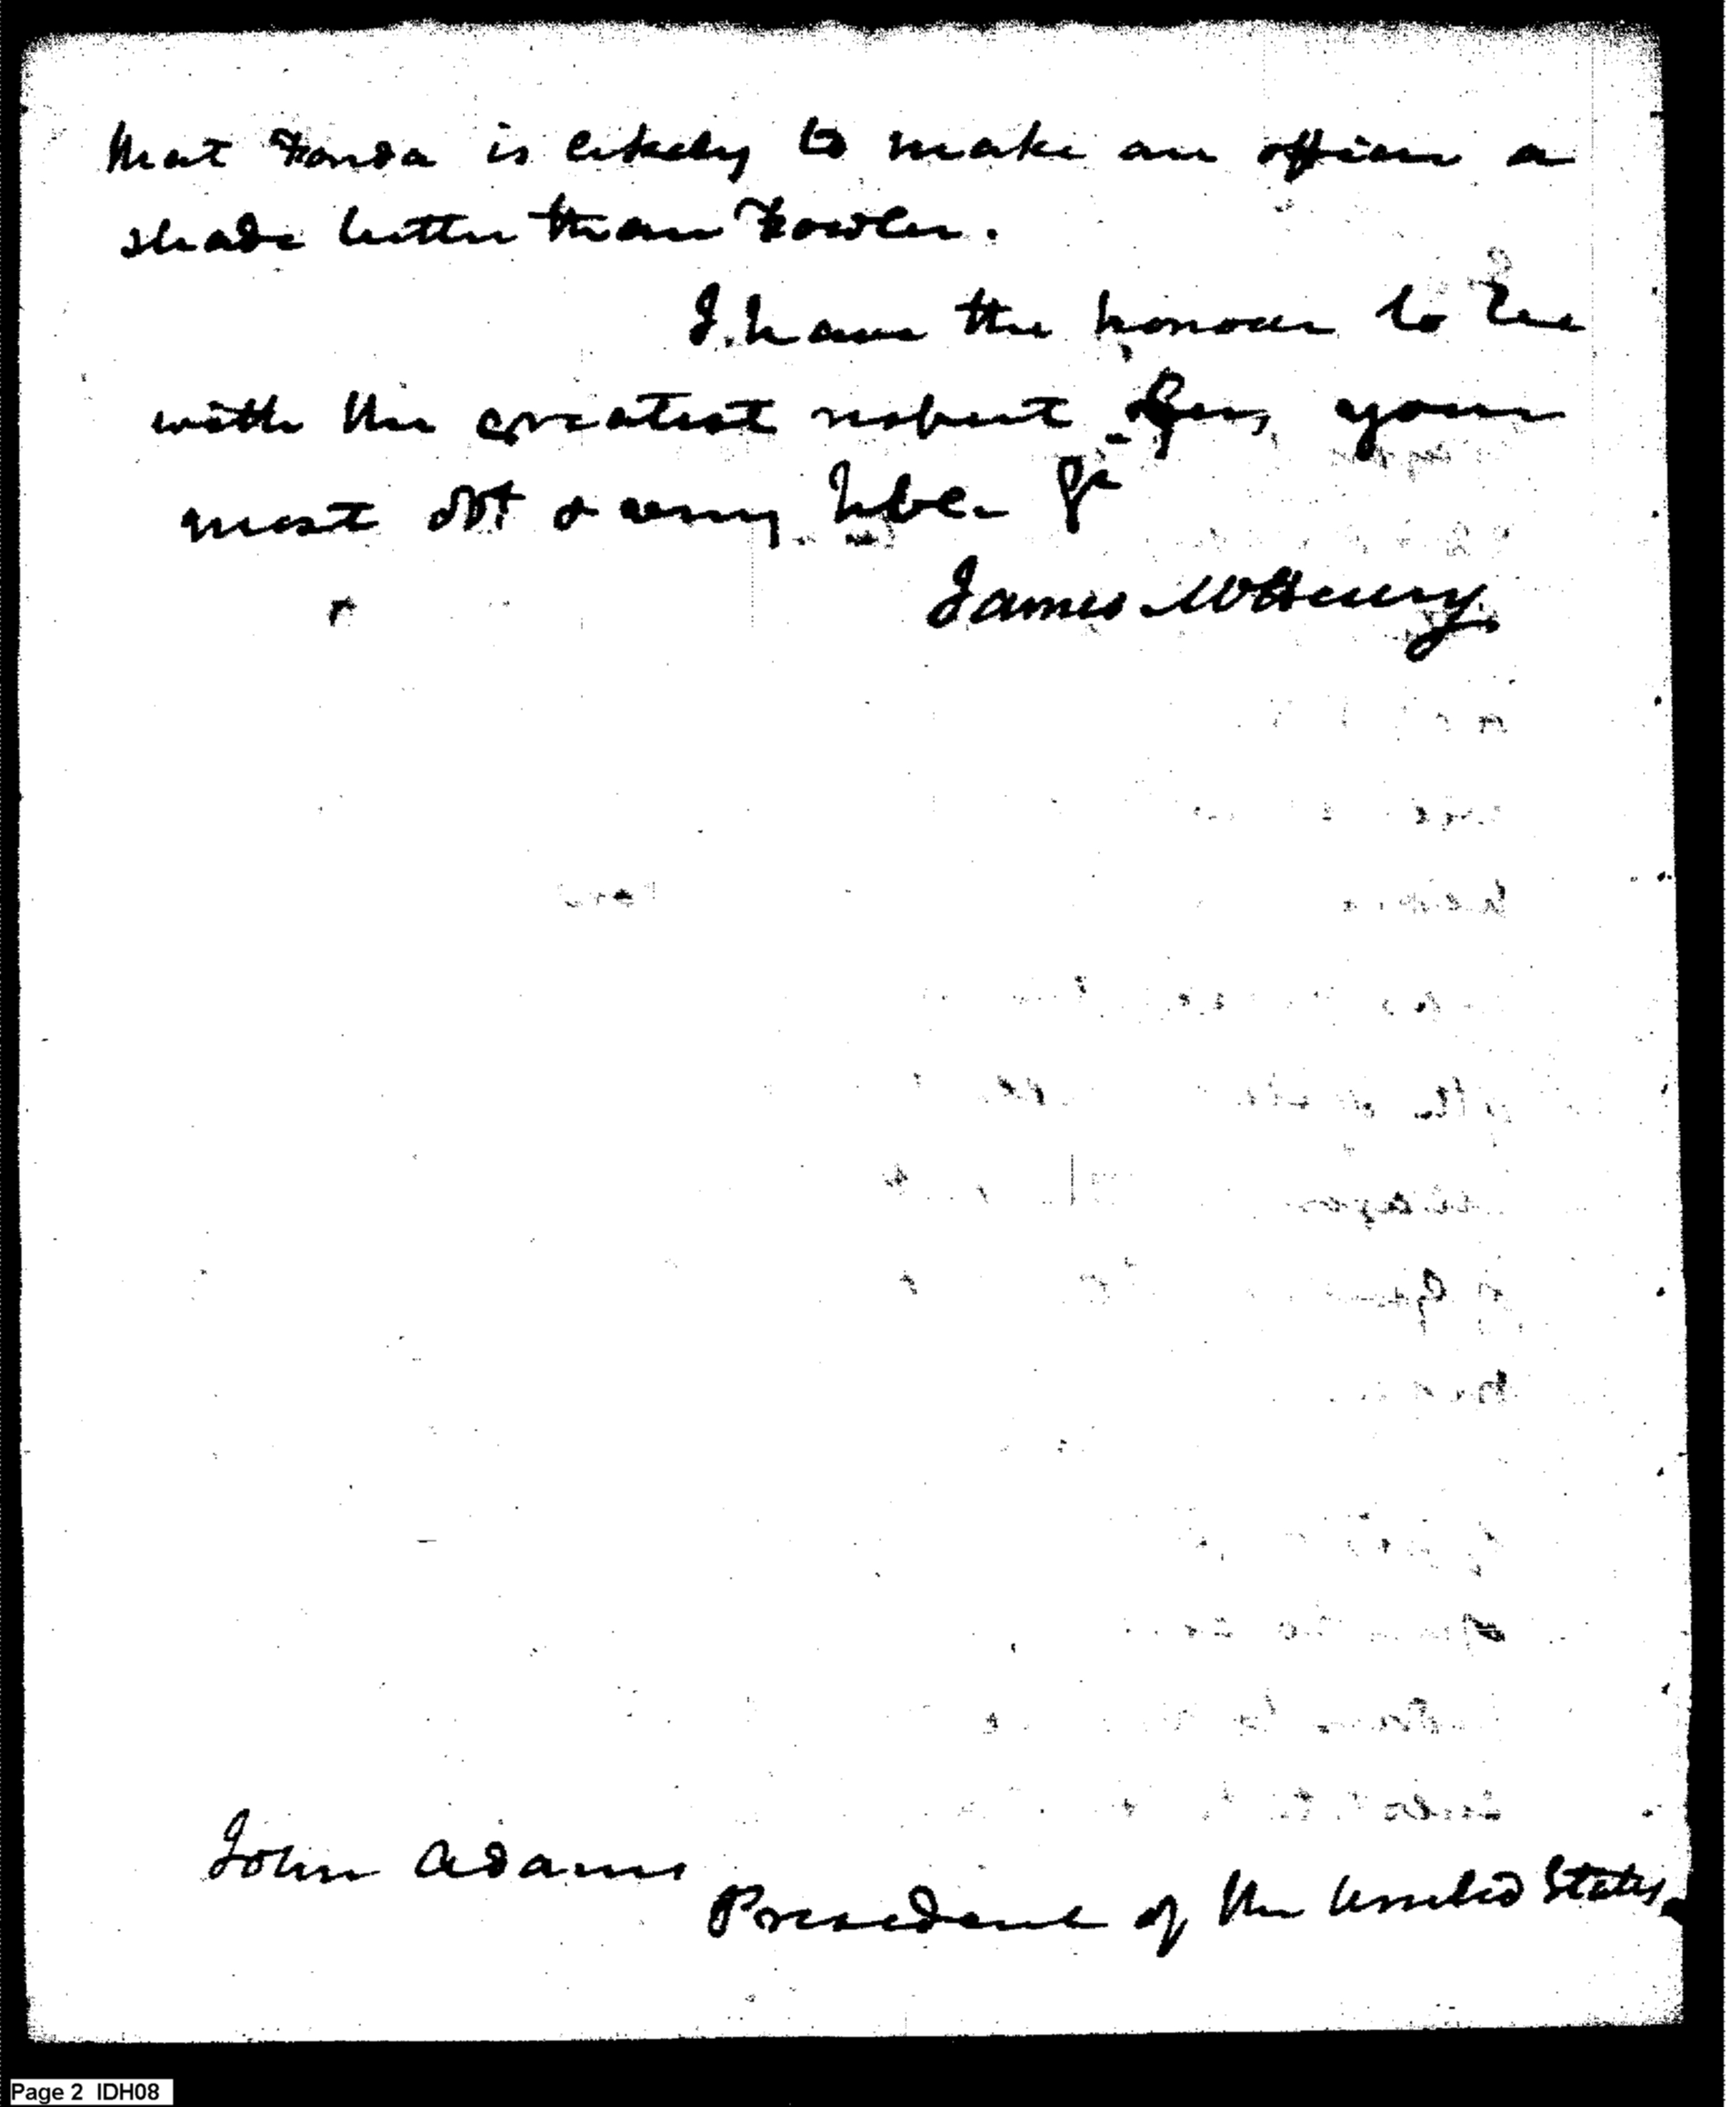 that Fonda is likely to make an officer a
shade better than Fowler.
I have the honour to be
with the greatest respect Sir, your
most obt & very hble. St
James McHenry.
John Adams
President of the United States
Page 2 IDH08